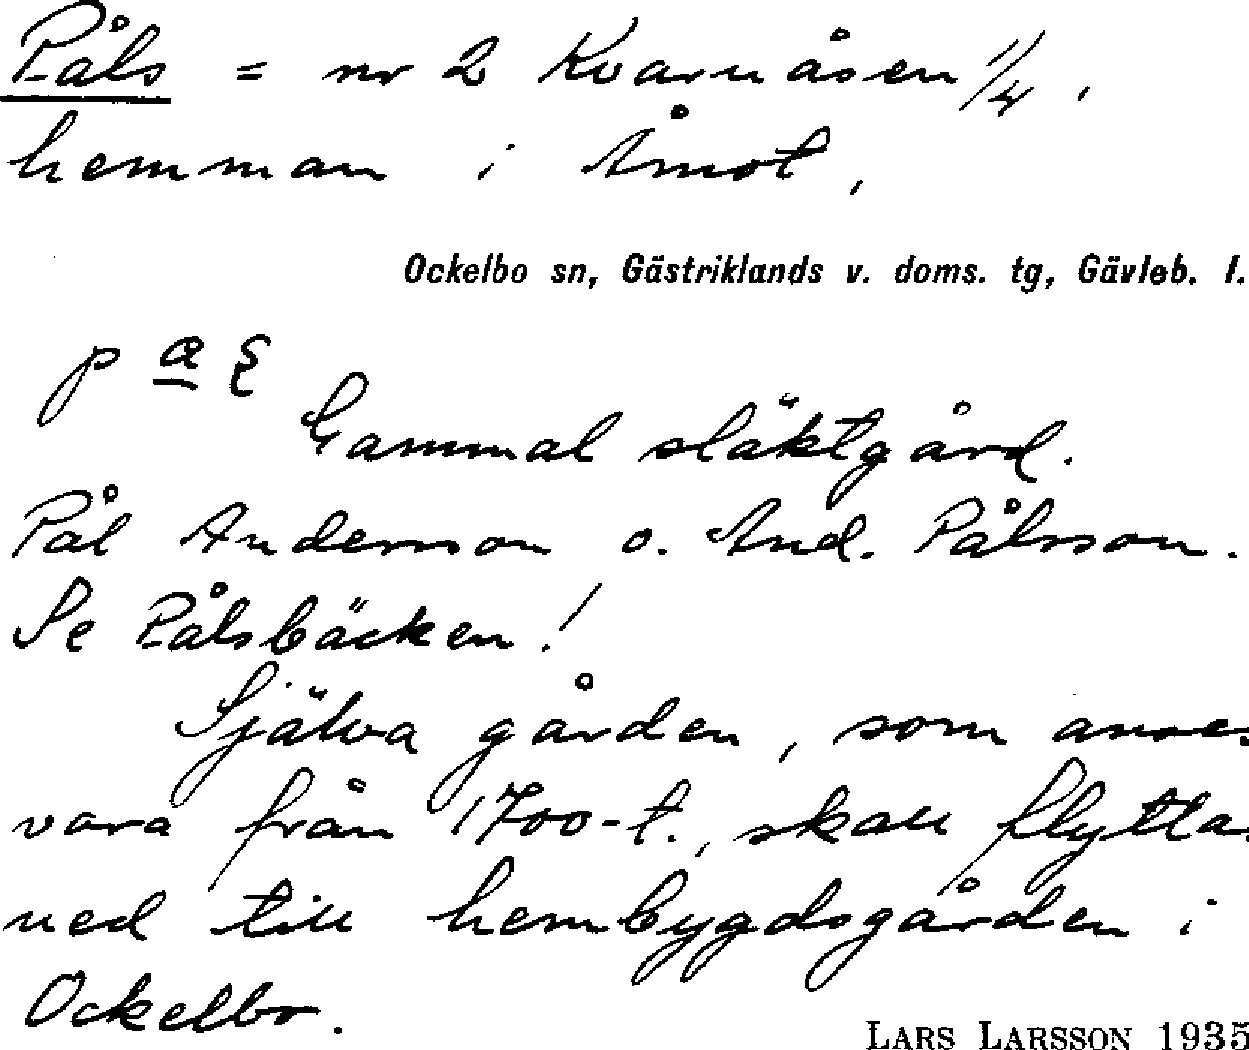 Påls = nr 2 Kvarnåsen 1/4,
hemman i Åmot,
Ockelbo sn, Gästriklands v. doms. tg, Gävleb. l.
Gammal släktgård.
Pål Anderson o. And. Pålsson.
Se Pålsbäcken!
Själva gården, som anses
vara från 1700-t., skall flyttas
ned till hembygdsgården i
Ockelbo.
LARS LARSSON 1935